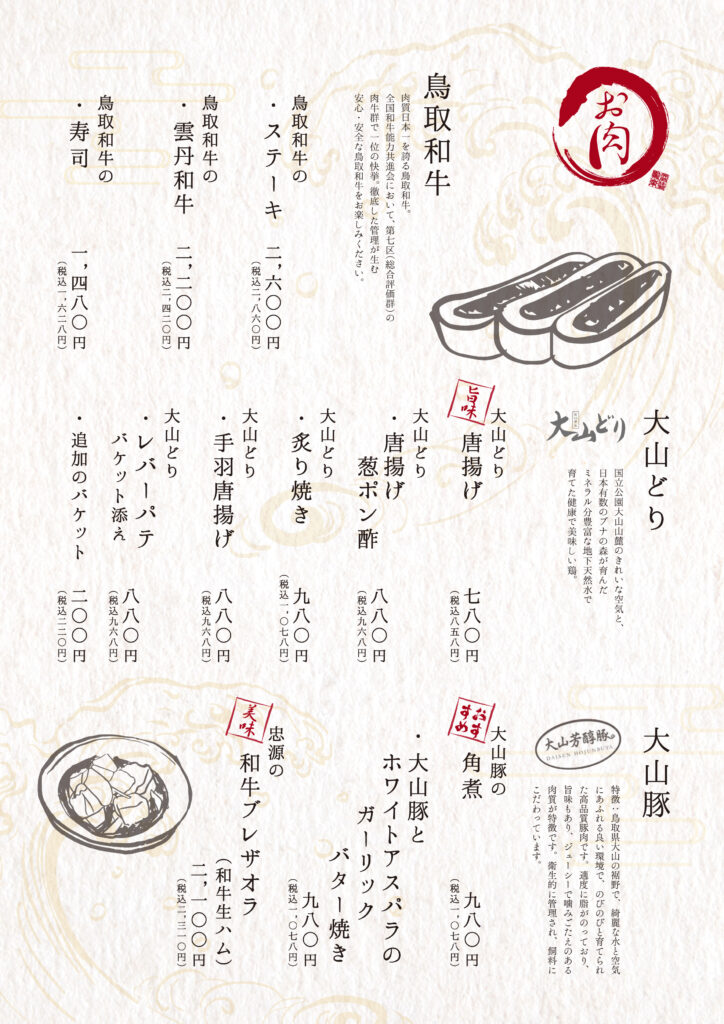 お肉
鳥取和牛
肉質日本一を誇る鳥取和牛。
全国和牛能力共進会において、第七区(総合評価群)の
肉牛群で一位の快挙。徹底した管理が生む
安心・安全な鳥取和牛をお楽しみください。
鳥取和牛の
・ステーキ
二,六〇〇円
(税込二,八六〇円)
鳥取和牛の
・雲丹和牛
二,二〇〇円
(税込二,四二〇円)
鳥取和牛の
・寿司
一,四八〇円
(税込一,六二八円)
大山どり
大山どり
国立公園大山山麓のきれいな空気と、
日本有数のブナの森が育んだ
ミネラル分豊富な地下天然水で
育てた健康で美味しい鶏。
旨味
大山どり
唐揚げ
七八〇円
(税込八五八円)
大山どり
・唐揚げ
葱ポン酢
八八〇円
(税込九六八円)
大山どり
・炙り焼き
九八〇円
(税込一,〇七八円)
大山どり
・手羽唐揚げ
八八〇円
(税込九六八円)
大山どり
・レバーパテ
バケット添え
八八〇円
(税込九六八円)
・追加のバケット
二〇〇円
(税込二二〇円)
大山豚
大山芳醇豚
DAISEN HOJUNBUTA
特徴:鳥取県大山の裾野で、綺麗な水と空気
にあふれる良い環境で、のびのびと育てられ
た高品質豚肉です。適度に脂がのっており、
旨味もあり、ジューシーで噛みごたえのある
肉質が特徴です。衛生的に管理され、飼料に
こだわっています。
おすすめ
大山豚の
角煮
九八〇円
(税込一,〇七八円)
・大山豚と
ホワイトアスパラの
ガーリック
バター焼き
九八〇円
(税込一,〇七八円)
美味
忠源の
和牛ブレザオラ
(和牛生ハム)
二,一〇〇円
(税込二,三一〇円)